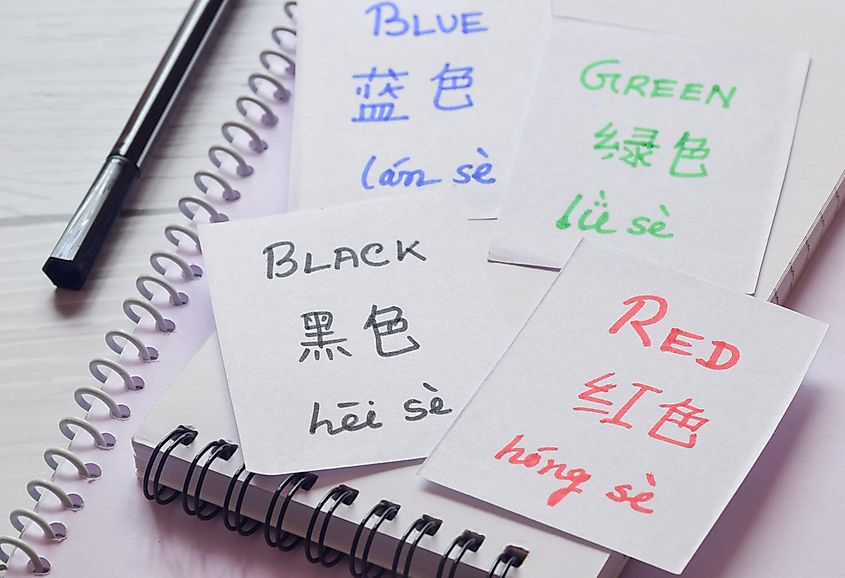 BLUE
蓝色
lán sè
GREEN
绿色
lǜ sè
BLACK
黑色
hēi sè
RED
红色
hóng sè